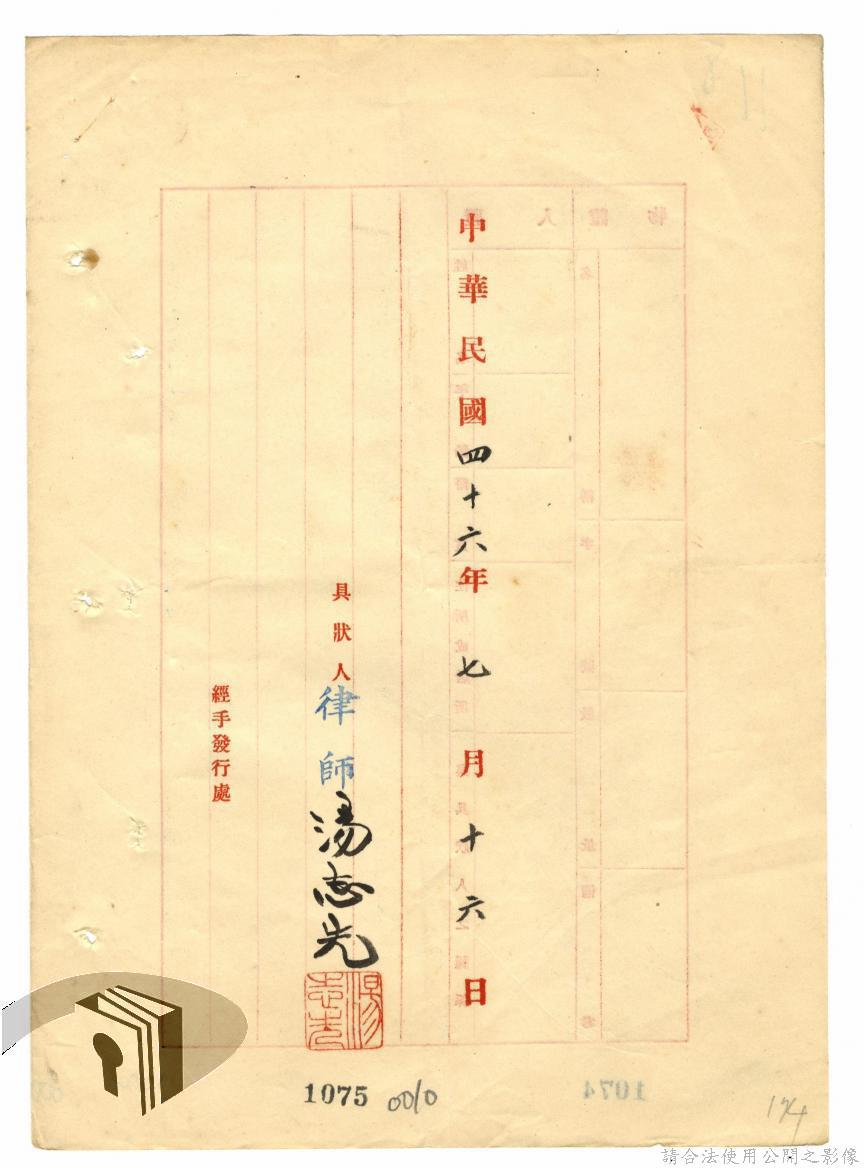 中華民國四十六年七月十六日
具狀人律師湯志先
湯志先
經手發行處
1075 0010
1074
174
請合法使用公開之影像